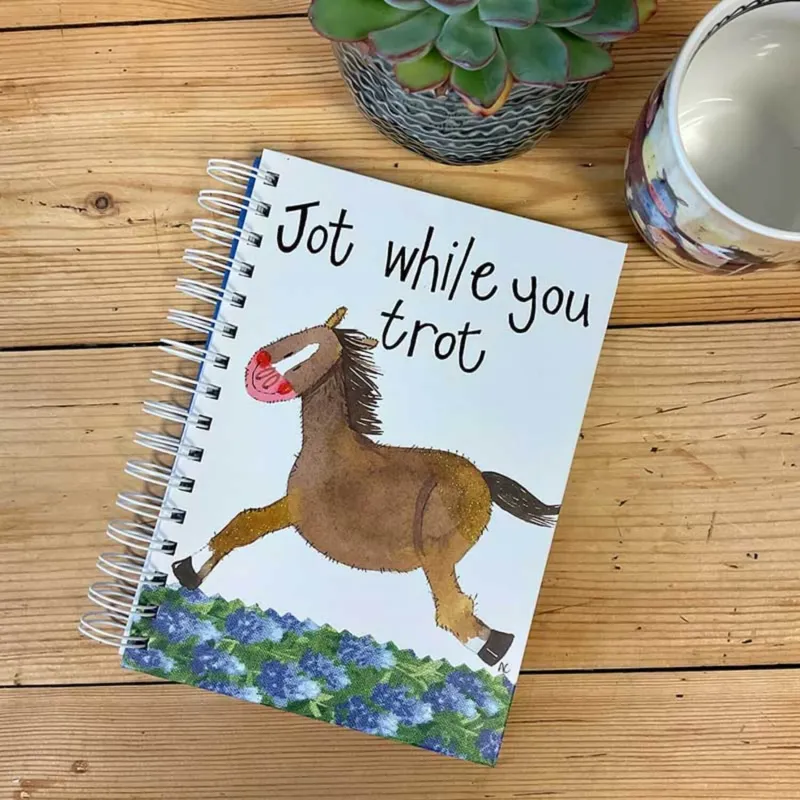 Jot while you
trot
AC